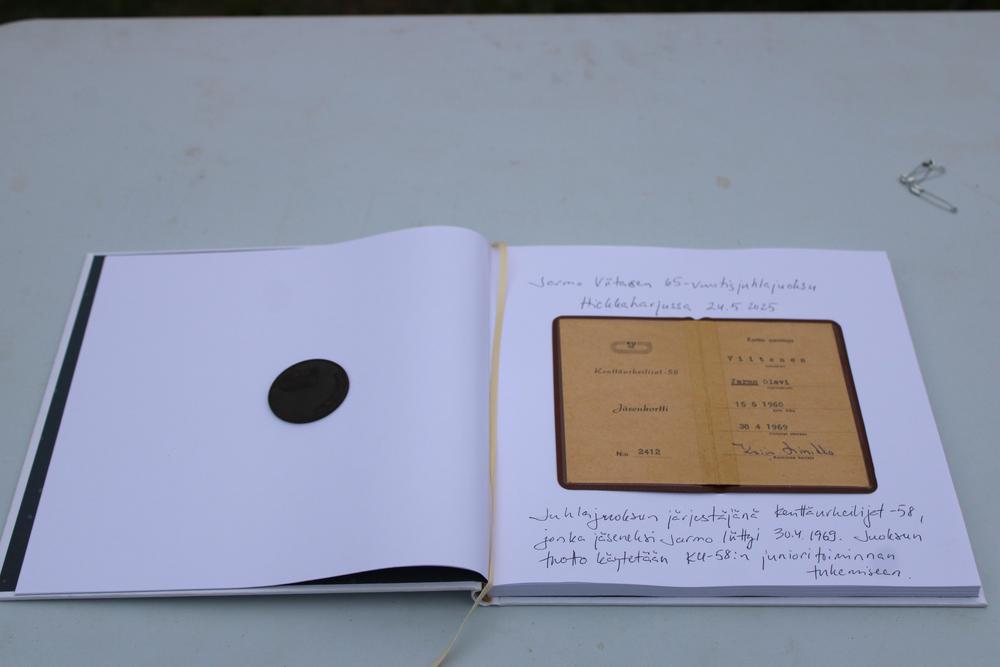 Jarmo Viitasen 65-vuotisjuhlajuoksu
Hiekkaharjussa 24.5.2025
Kenttäurheilijat-58
Jäsenkortti
N:o 2412
Kortin omistaja
Viitanen
Jarmo Olavi
15 5 1960
30 4 1969
Juhlajuoksun järjestäjänä Kenttäurheilijat-58,
jonka jäseneksi Jarmo liittyi 30.4.1969. Juoksun
tuotto käytetään KU-58:n junioritoiminnan
tukemiseen.